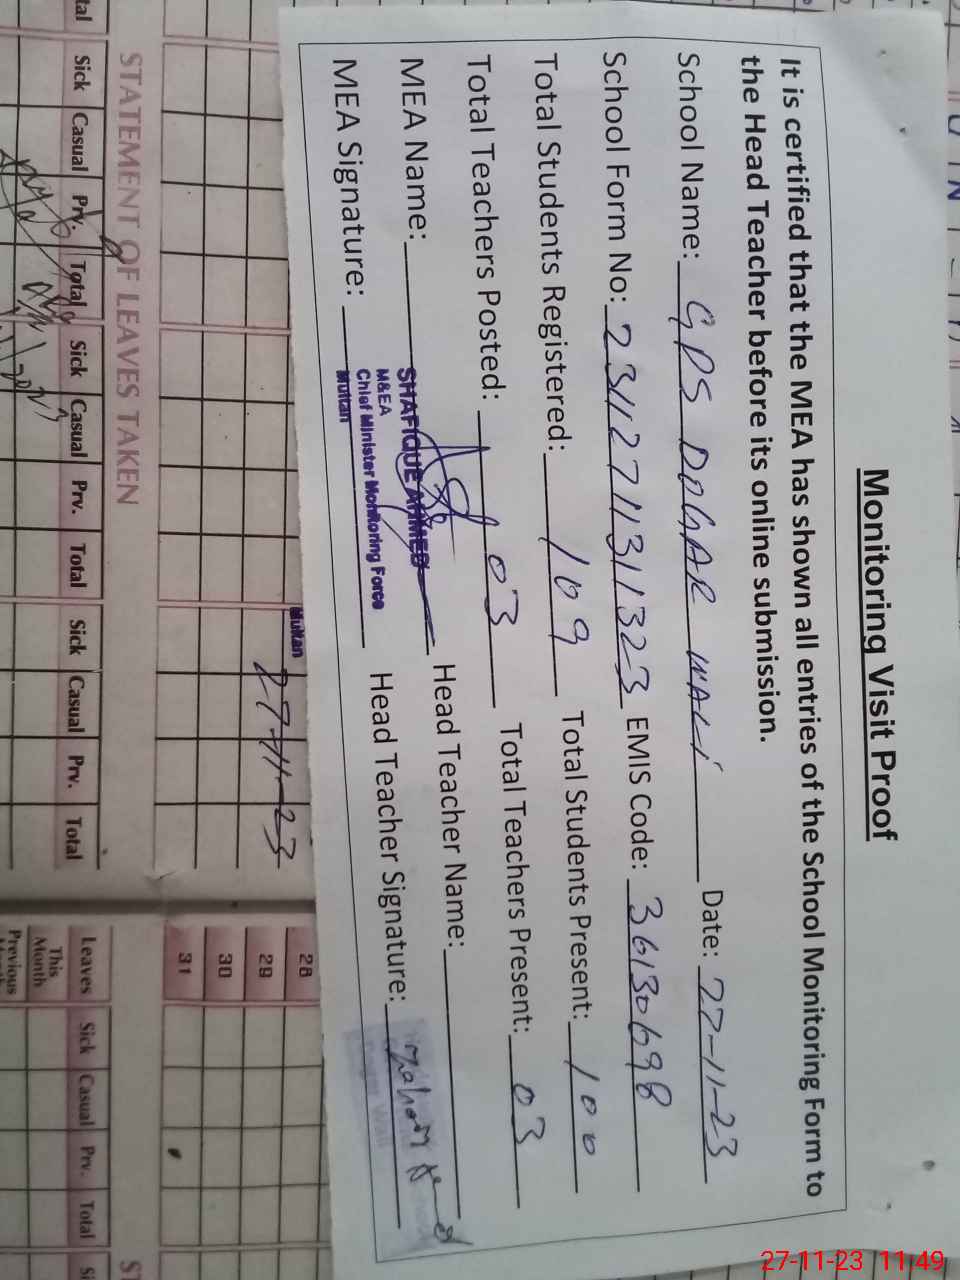 Monitoring Visit Proof
It is certified that the MEA has shown all entries of the School Monitoring Form to
the Head Teacher before its online submission.
School Name: GPS DOGAR WALI Date: 27-11-23
School Form No: 23112711311323 EMIS Code: 36130698
Total Students Registered: 109 Total Students Present: 100
Total Teachers Posted: 03 Total Teachers Present: 03
MEA Name: SHAFIQUE AHMED Head Teacher Name:
M&EA
Chief Minister Monitoring Force
Multan
MEA Signature: Head Teacher Signature:
Multan
27-11-23
28
29
30
31
STATEMENT OF LEAVES TAKEN
Sick Casual Prv. Total Sick Casual Prv. Total Sick Casual Prv. Total
Leaves Sick Casual Prv. Total
This
Month
Previous
27-11-23 11:49